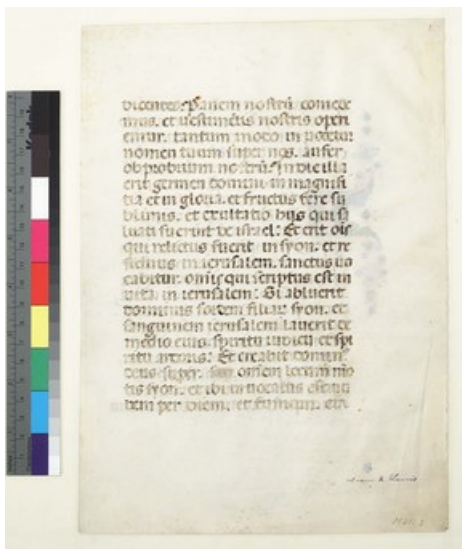 dicentes. Panem nostrū comede
mus. et uestimētis nostris operi
emur. tantum modo inuocetur
nomen tuum super nos. aufer
obprobrium nostrū. In die illa
erit germen domini in magnifi
tia et in gloria. et fructus terre su
blimis. et exultatio hijs qui sa
luati fuerint de israel. Et erit oīs
qui relictus fuerit in syon. et re
siduus in ierusalem. sanctus uo
cabitur. omīs qui scriptus est in
uita in ierusalem. Si abluerit
dominus sordem filiar syon. et
sanguinem ierusalem lauerit de
medio eius. spiritu iudicij et spi
ritu ardoris. Et creabit domin
deus super omēm locum mō
tis syon. et ubi inuocatus est nu
bem per diem. et fumum. et